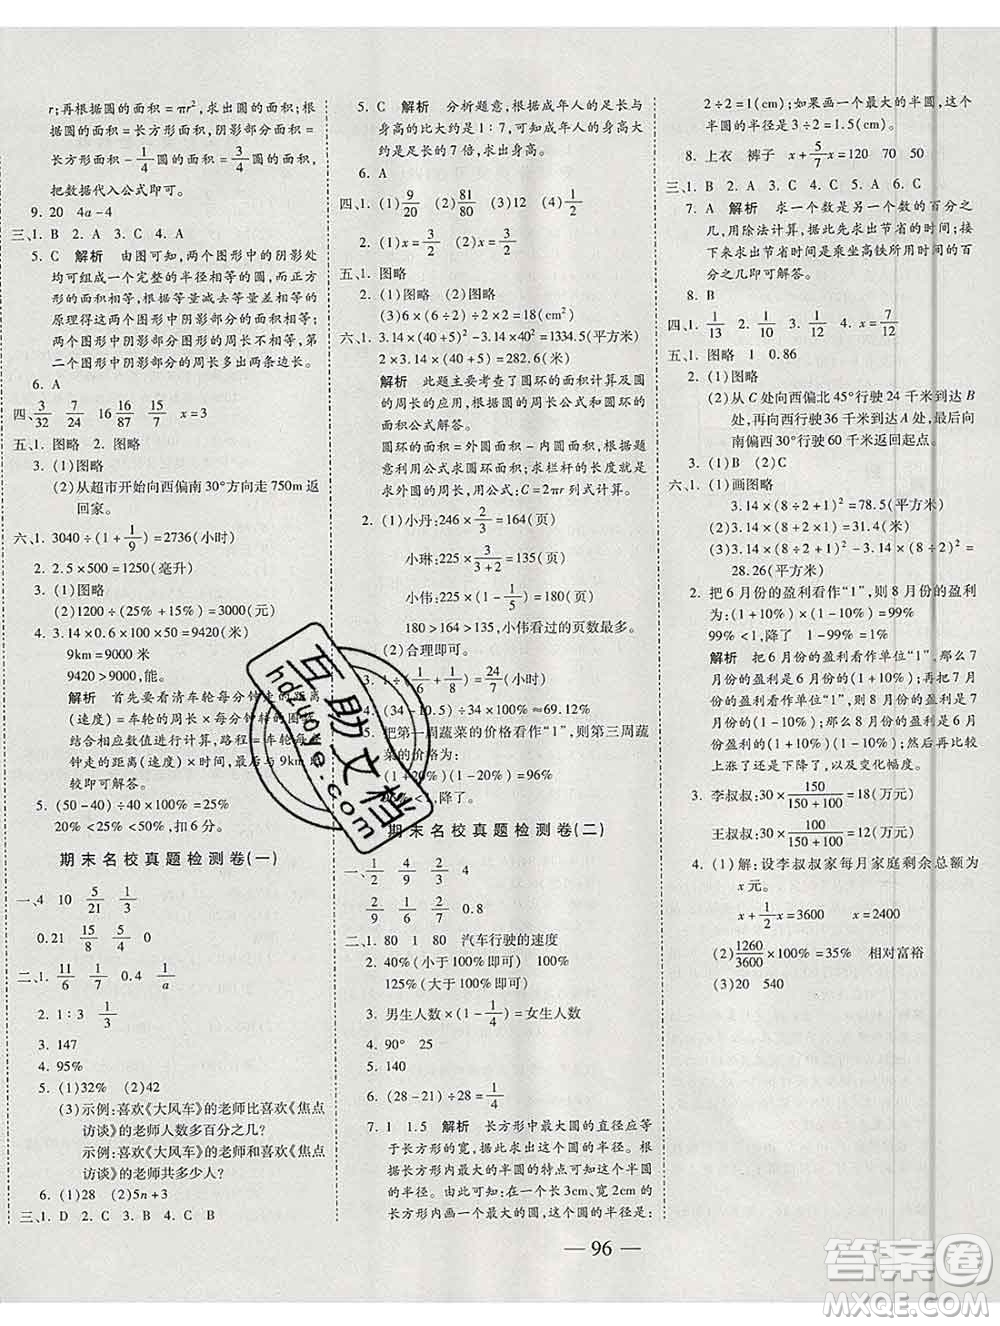 r;再根据圆的面积=πr²,求出圆的面积;根
据圆的面积=长方形面积,阴影部分面积=
长方形面积-1/4圆的面积=3/4圆的面积,
把数据代入公式即可。
9. 20 4a-4
三、1. B 2. A 3. C 4. A
5. C 解析 由图可知,两个图形中的阴影处
均可组成一个完整的半径相等的圆,而正方
形的面积相等,根据等量减去等量差相等的
原理得这两个图形中阴影部分的面积相等;
两个图形中阴影部分的周长不相等,第
二个图形中阴影的周长多出两条边长。
6. A
四、3/32 7/24 16 16/87 15/7 x=3
五、1. 图略 2. 图略
3. (1)图略
(2)从超市开始向西偏南30°方向走750m返
回家。
六、1. 3040÷(1+1/9)=2736(小时)
2. 2.5×500=1250(毫升)
3. (1)图略
(2)1200÷(25%+15%)=3000(元)
4. 3.14×0.6×100×50=9420(米)
9km=9000米
9420>9000,能。
解析 首先要看清车轮每分钟走的距离
(速度)=车轮的周长×每分钟转的圈数,
结合相应数值进行计算,路程=车轮每分
钟走的距离(速度)×时间,最后与9km的
较即可解答。
5. (50-40)÷40×100%=25%
20%<25%<50%,扣6分。
期末名校真题检测卷(一)
一、4 10 5/21 1/3
0.21 15/8 5/4 0
二、1. 11/6 1/7 0.4 1/a
2. 1∶3 1/3
3. 147
4. 95%
5. (1)32% (2)42
(3)示例:喜欢《大风车》的老师比喜欢《焦点
访谈》的老师人数多百分之几?
示例:喜欢《大风车》的老师和喜欢《焦点
访谈》的老师共多少人?
6. (1)28 (2)5n+3
三、1. D 2. C 3. C 4. B
5. C 解析 分析题意,根据成年人的足长与
身高的比大约是1∶7,可知成年人的身高大
约是足长的7倍,据此求出身高。
6. A
四、1. (1)9/20 (2)81/80 (3)12 (4)1/2
2. (1)x=3/2 (2)x=3/2
五、1. 图略
2. (1)图略 (2)图略
(3)6×(6÷2)÷2×2=18(cm²)
六、1. 3.14×(40+5)²-3.14×40²=1334.5(平方米)
2×3.14×(40+5)=282.6(米)
解析 此题主要考查了圆环的面积计算及圆
的周长的应用,根据题意利用圆环的面积公
式解答。
圆环的面积=外圆面积-内圆面积,根据题
意利用公式求圆环的面积;求栏杆的长度就是
求外圆的周长,用公式:C=2πr列式计算。
2. (1)小丹:246×2/3=164(页)
小琳:225×3/(3+2)=135(页)
小伟:225×(1-1/5)=180(页)
180>164>135,小伟看过的页数最多。
(2)合理即可。
3. 1÷(1/4+1/6)×1=24/7(小时)
4. (34-10.5)÷34×100%≈69.12%
5. 把第一周蔬菜的价格看作“1”,则第三周蔬
菜的价格为:
(1+20%)×(1-20%)=96%
96%<1,降了。
期末名校真题检测卷(二)
一、1/2 4/9 2/3 4
2/9 1/6 4/9 0.8
二、1. 80 1 80 汽车行驶的速度
2. 40%(大于0小于100%均可)
125%(大于100%即可)
3. 男生人数×(1-1/4)=女生人数
4. 90° 25
5. 140
6. (28-21)÷28=1/4
7. 1 1.5 解析 长方形中最大圆的直径应等
于长方形的宽,据此求出这个圆的半径,根
据长方形内最大的半圆的特点可知这个半圆
的半径。由此可知:在一个长3cm,宽2cm的
长方形内画一个最大的圆,这个圆的半径是:
2÷2=1(cm);如果画一个最大的半圆,这个
半圆的半径是3÷2=1.5(cm)。
8. 上衣 裤子 x+5/7x=120 70 50
三、1. B 2. B 3. A 4. C 5. A 6. C
7. A 解析 求一个数是另一个数的百分之
几,用除法计算,据此求出节省的时间;接
下来求出节省的时间是乘坐高铁所用时间的百
分之几即可解答。
8. B
四、1. 1/13 2. 1/10 3. 3/8 4. x=7/12
五、1. 图略 1 0.86
2. (1)图略
(2)从C处向西偏北45°行驶24千米到达B
处,再向西行驶36千米到达A处,最后向
南偏西30°行驶60千米返回起点。
3. (1)B (2)D (3)A
六、1. (1)画图略
3.14×(8÷2+1)²=78.5(平方米)
(2)3.14×(8+2)=31.4(米)
(3)3.14×(8÷2+1)²-3.14×(8÷2)²=
28.26(平方米)
2. 把6月份的盈利看作“1”,则8月份的盈利
为:(1+10%)×(1-10%)=99%
99%<1,降了 1-99%=1%
解析 把6月份的盈利看作单位“1”,那么7
月份的盈利是6月份的1+10%,再把7
月份的盈利看作单位“1”,则8月份的盈利是7
月份的1-10%;那么8月份的盈利=6月份的
盈利×(1+10%)×(1-10%),最后与1比较即可知是
上涨了还是降了,以及变化幅度。
3. 李叔叔:30×150/(150+100)=18(万元)
王叔叔:30×100/(150+100)=12(万元)
4. (1)解:设李叔叔家每月家庭剩余总额为
x元。
x+1/2x=3600 x=2400
(2)1260/3600×100%=35% 相对富裕
(3)20 540
— 96 —
互助文档
hdzuoye.com
答案圈
MXQE.COM